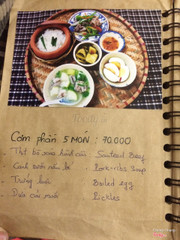 Cơm phần 5 MÓN : 70.000
Thịt bò xào hành cần Sauteed Beef
Canh sườn nấu bí Pork-ribs Soup
Trứng luộc Boiled egg
Dưa cà muối Pickles